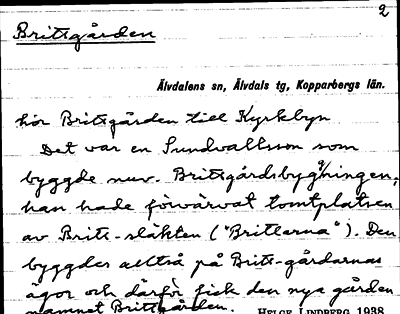 2
Brittgården
Älvdalens sn, Älvdals tg, Kopparbergs län.
hör Brittgården till Kyrkbyn
Det var en Sundvallsson som
byggde nuv. Brittgårdsbygningen,
han hade förvärvat tomtplatsen
av Britt-släkten ("Brittarna"). Den
byggdes alltså på Britt-gårdarnas
ägor och därför fick den nya gården
namnet Brittgården.
HELGE LINDBERG 1938